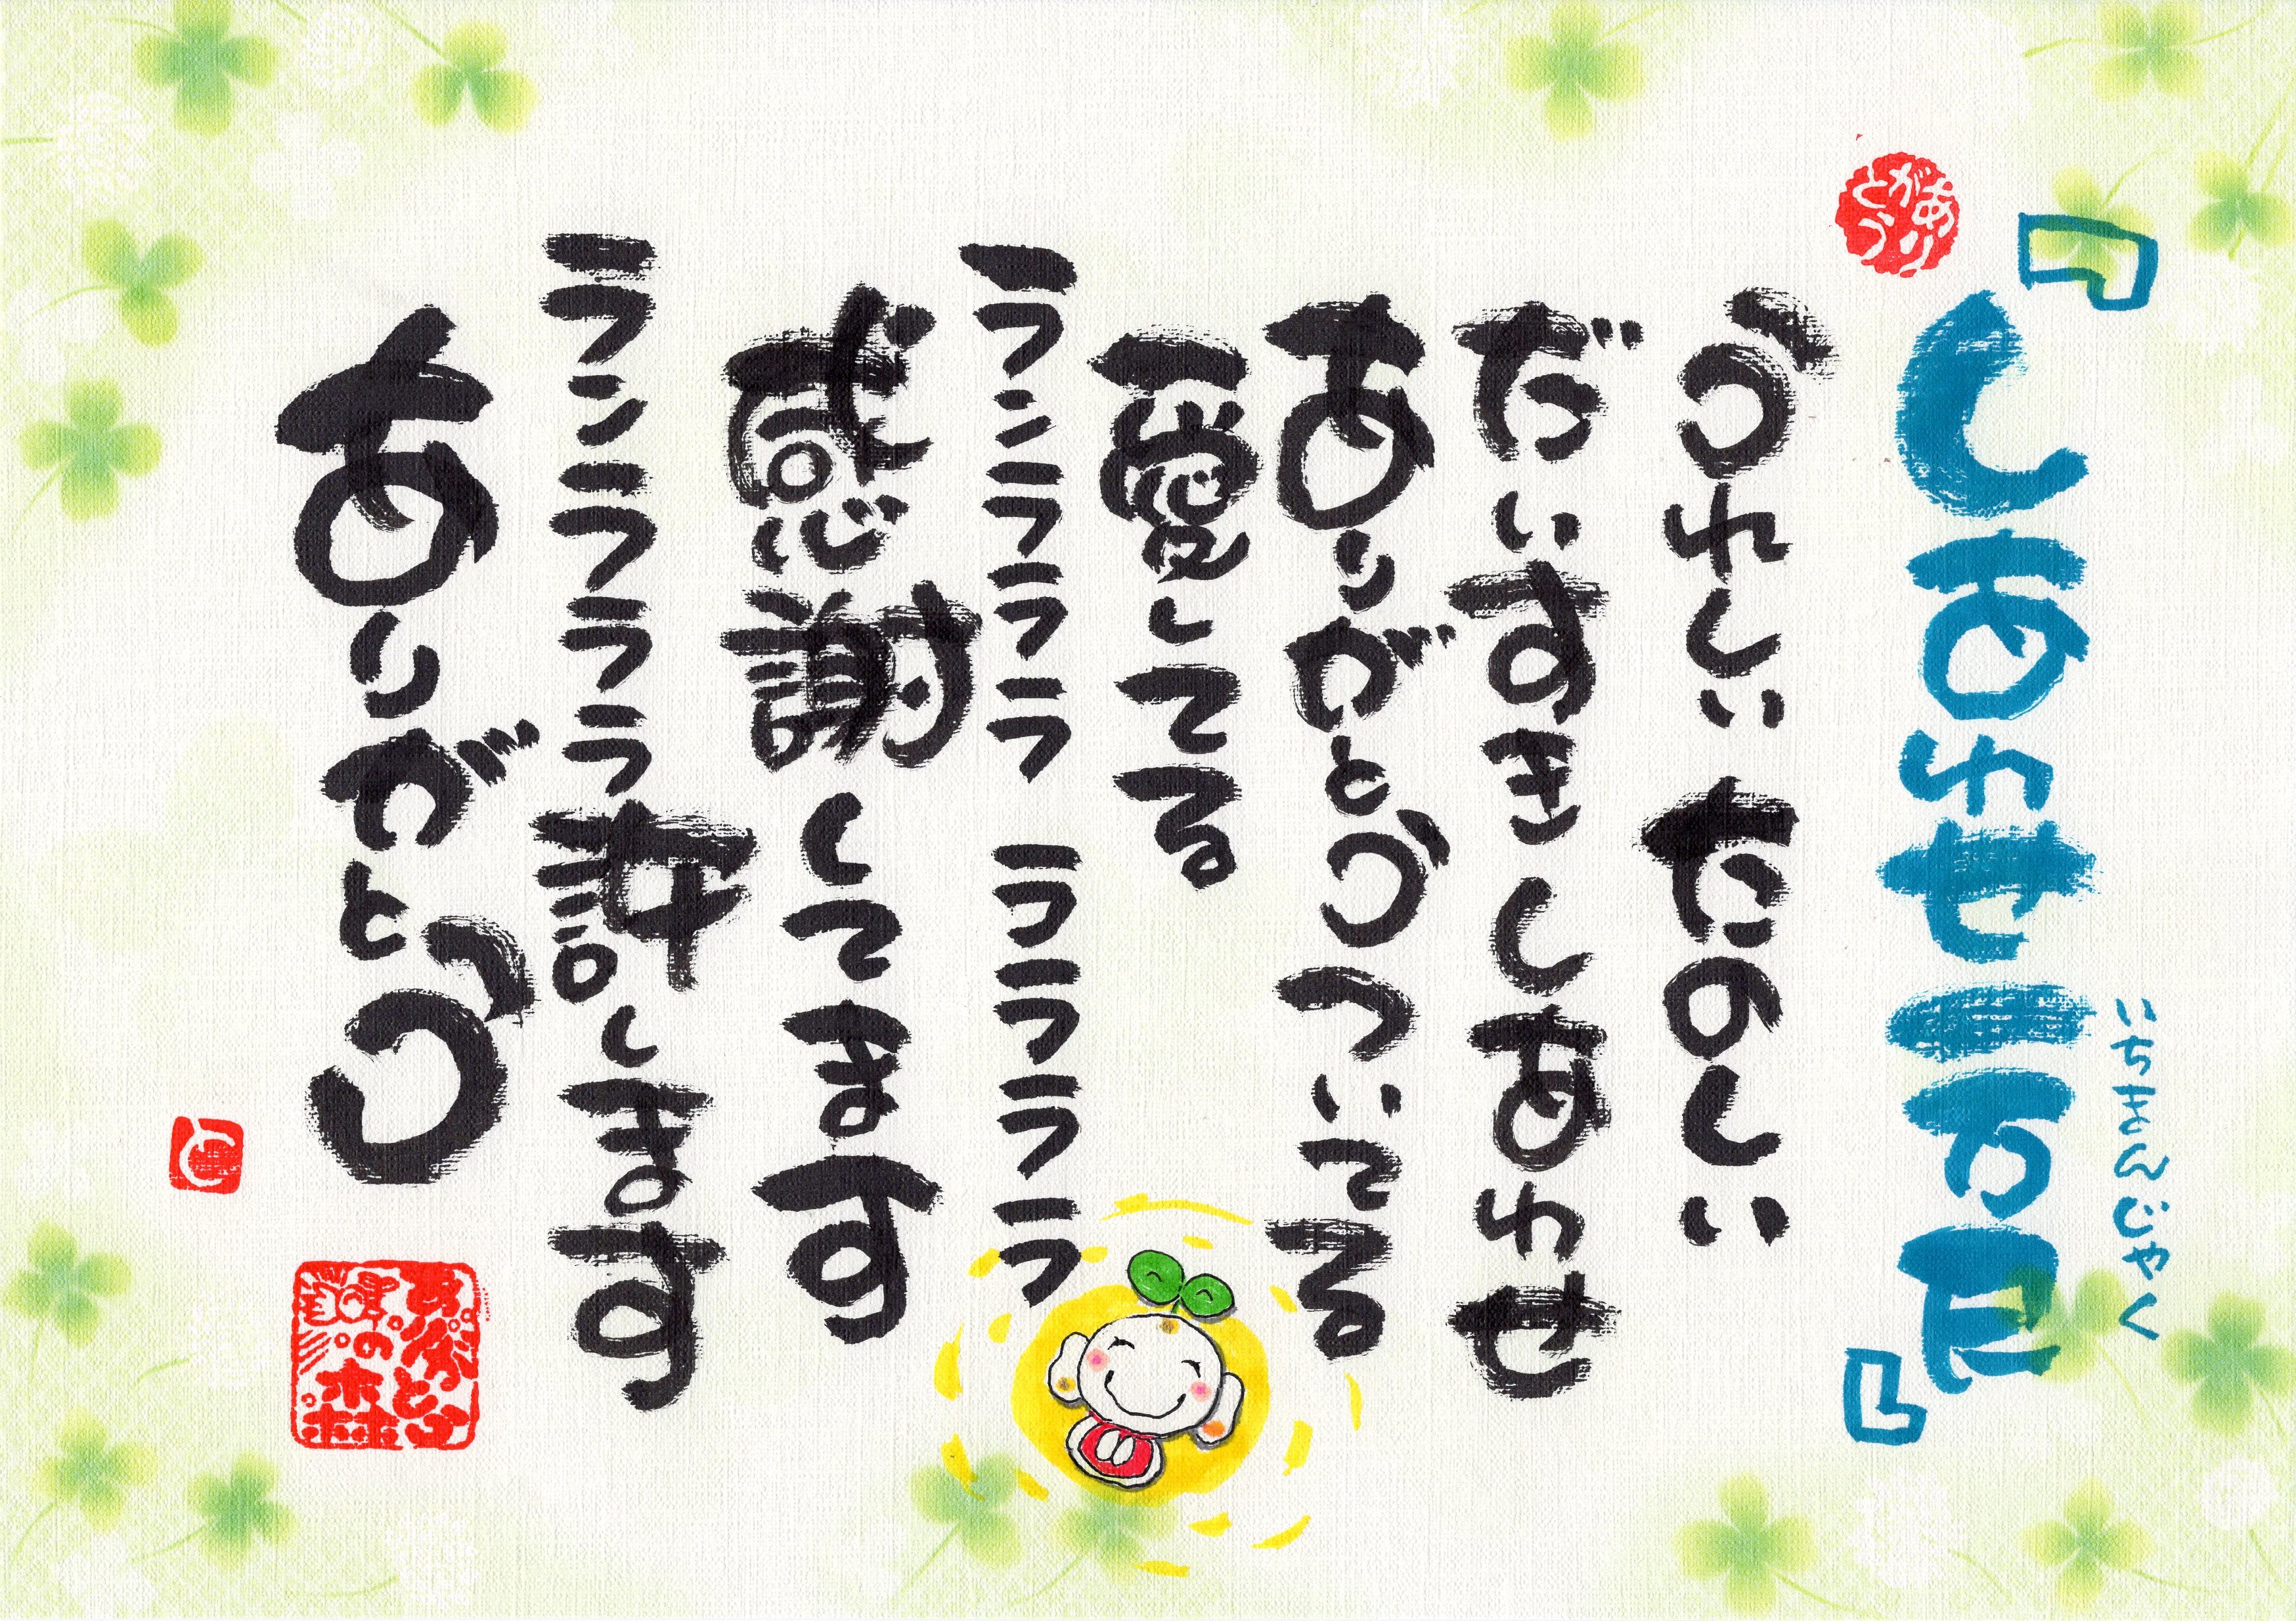 『しあわせ一万尺』
いちまんじゃく
ありがとう
うれしい たのしい
だいすき しあわせ
ありがとう ついてる
愛してる
ランラララ ララララ
感謝してます
ランラララ 許します
ありがとう
ありがとうの森